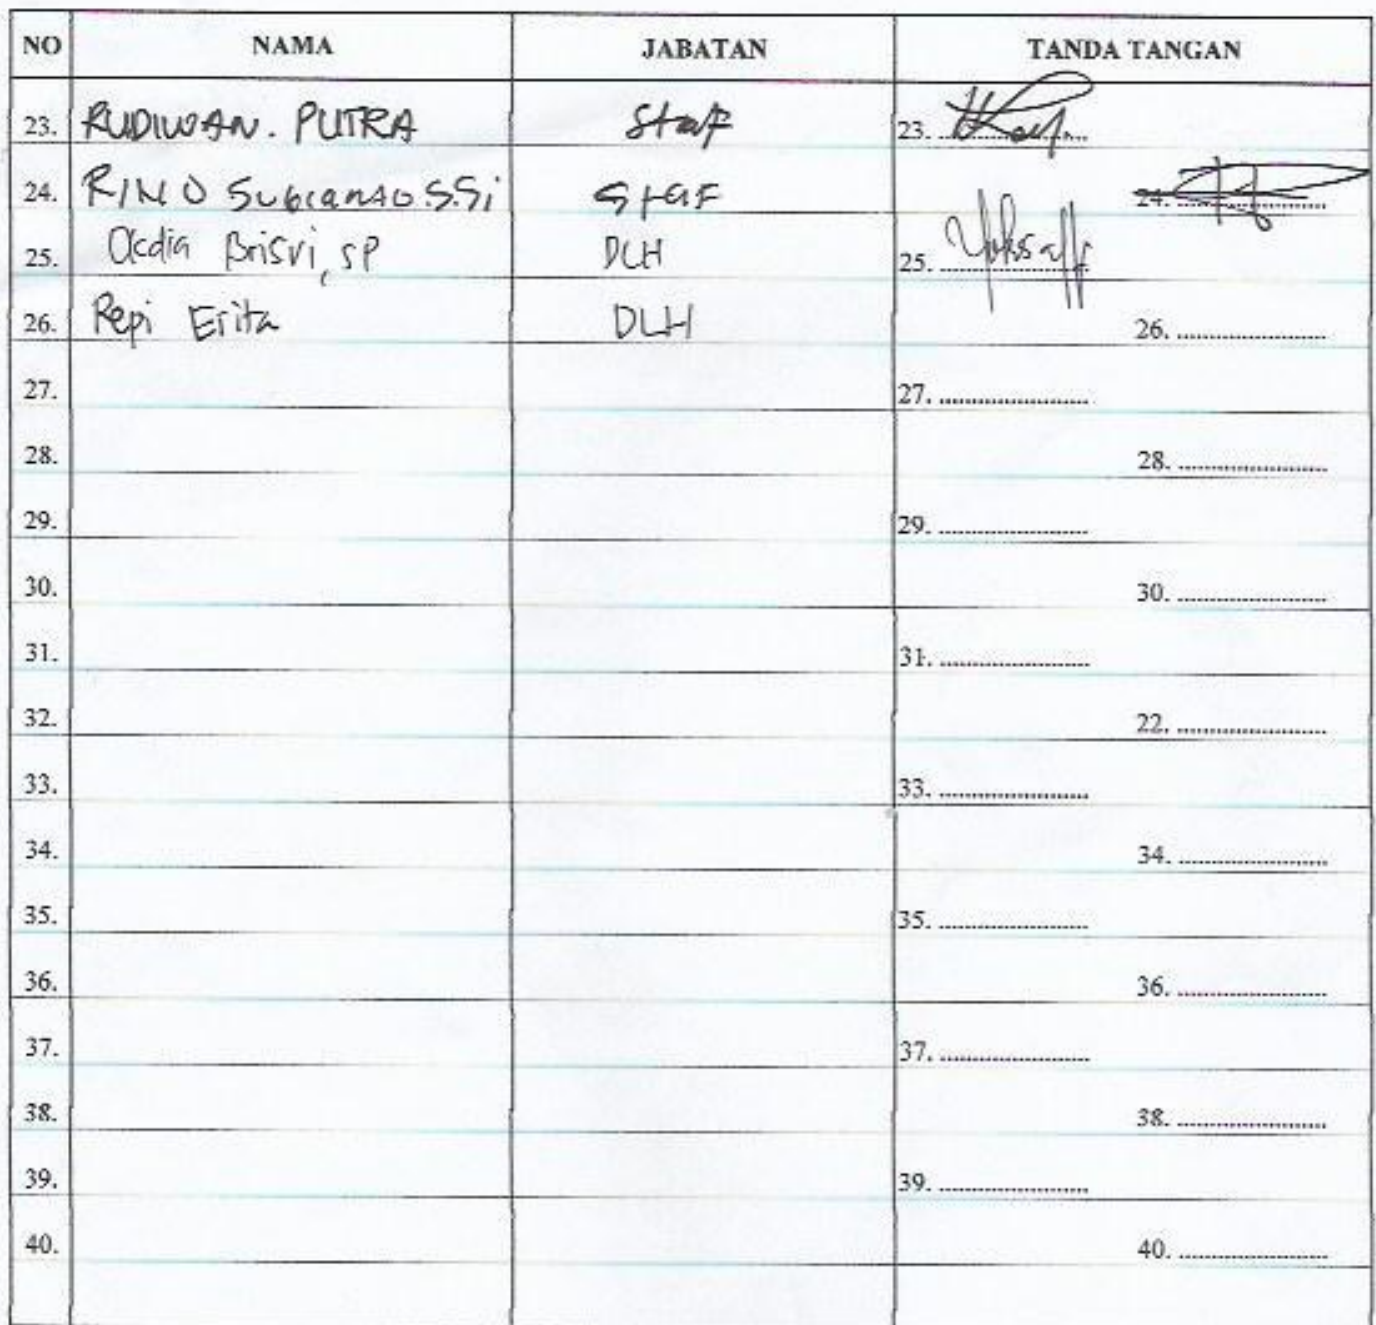 NO NAMA JABATAN TANDA TANGAN
23. RUDIWAN. PUTRA Staf 23.
24. RINO S.Si Staf 24.
25. Brisvi, SP DLH 25.
26. Repi Erita DLH 26.
27. 27.
28. 28.
29. 29.
30. 30.
31. 31.
32. 22.
33. 33.
34. 34.
35. 35.
36. 36.
37. 37.
38. 38.
39. 39.
40. 40.